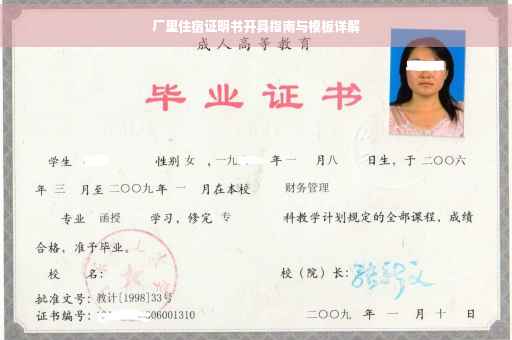 厂里住宿证明书开具指南与模板详解
成人高等教育
毕业证书
学生 性别 女 ，一九 年 一 月八 日生，于 二〇〇六
年 三 月至 二〇〇九 年 一 月在本校 财务管理
专业 函授 学习，修完 专 科教学计划规定的全部课程，成绩
合格，准予毕业。
校 名： 校（院）长：
批准文号：教计[1998]33号
证书编号： 06001310 二〇〇九 年 一 月 十 日